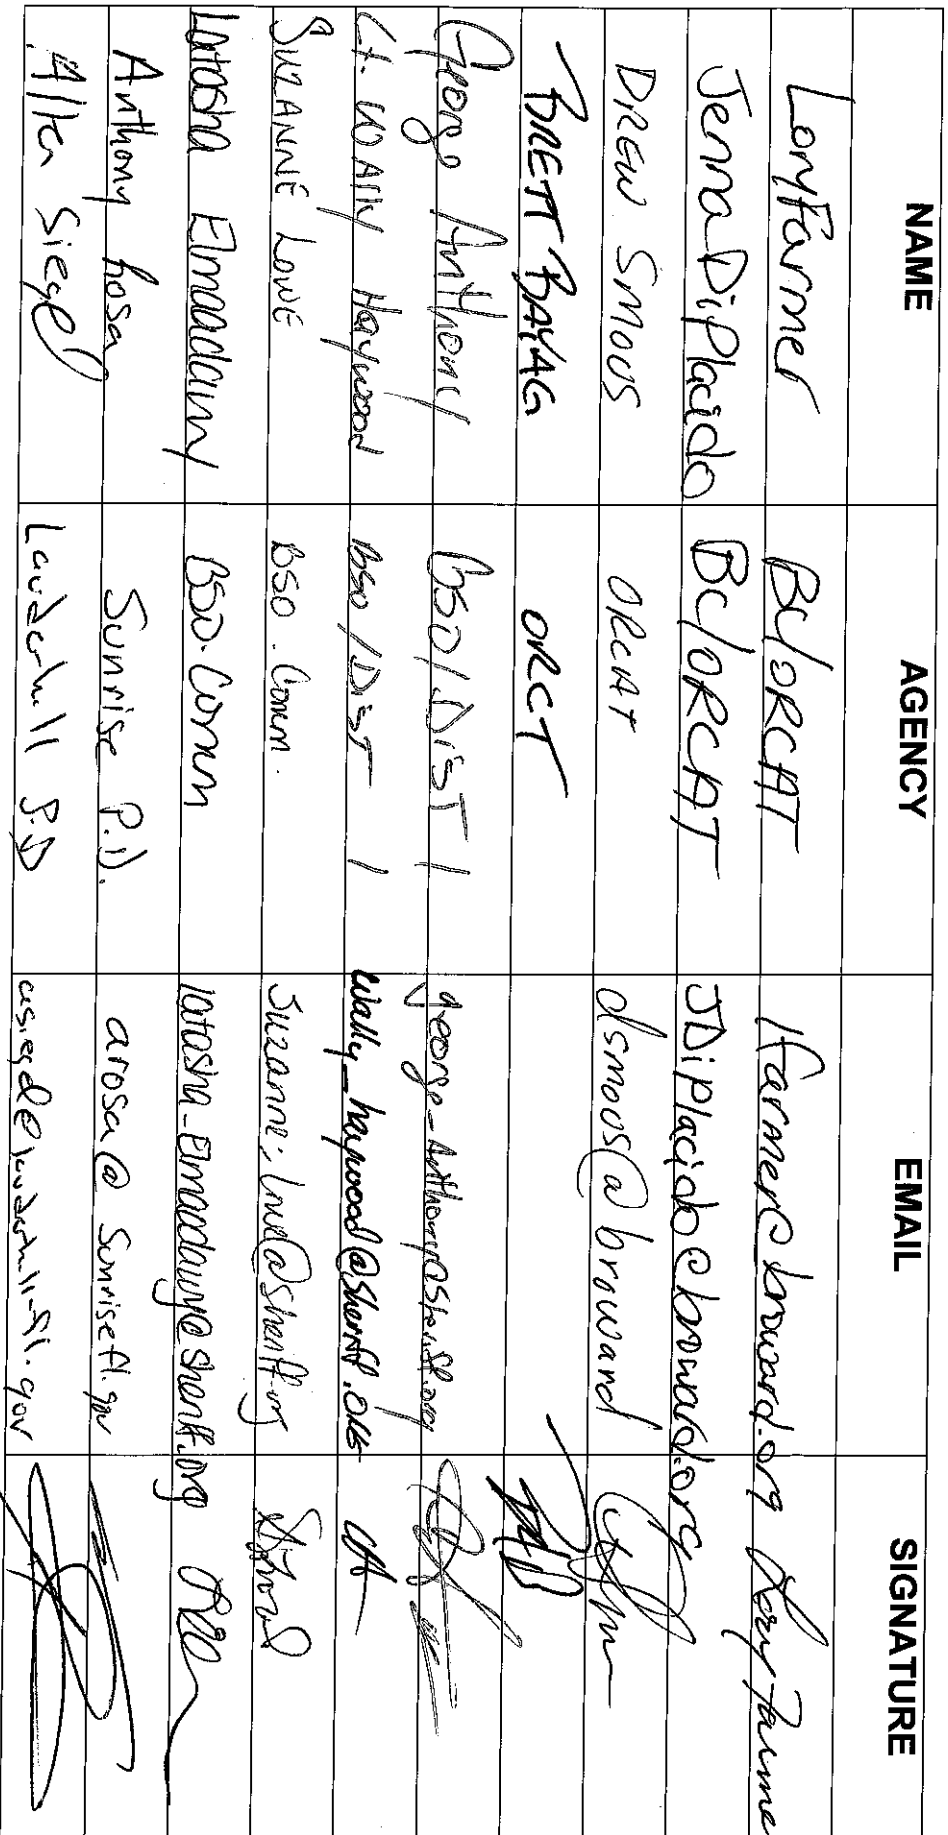 NAME AGENCY EMAIL SIGNATURE
Lory Farmer BC/ORCAT lfarmer@broward.org Lory Farmer
Jenna DiPlacido BC/ORCAT JDiPlacido@broward.org
DREW SMOUS ORCAT dsmous@broward
BRETT BAYAG ORCT BB
George Anthony BSO/DIST 1 george_Anthony@sheriff.org
Lt. WALLY Haywood BSO/DIST 1 Wally_haywood@Sheriff.ORG
SUZANNE LOWE BSO. Comm.
Latasha Elmadawy BSO. Comm latasha_Elmadawy@sheriff.org
Anthony Rosa Sunrise P.D. arosa@Sunrisefl.gov
Allen Siegel Lauderhill P.D asiegel@lauderhill-fl.gov